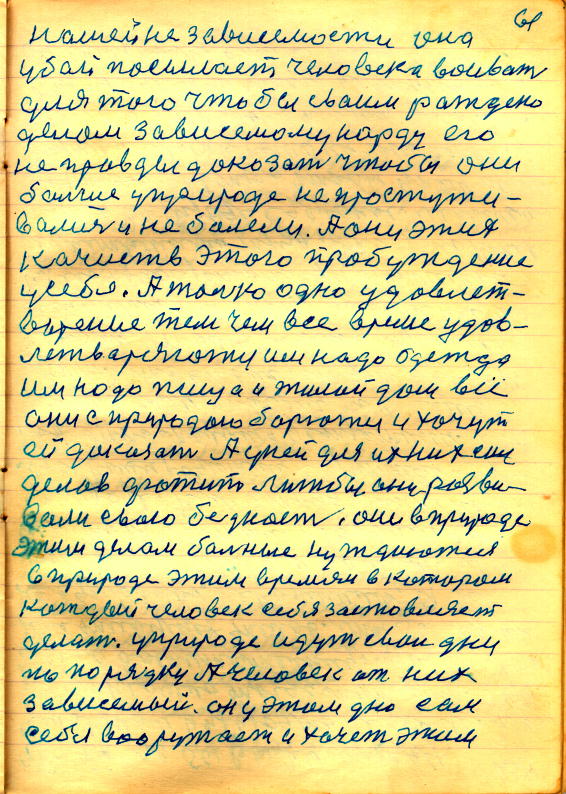 61
нашей не зависемости она
убай посилает человека воеват
для того чтобы своим рождено
делом зависемому народу его
не правды доказат чтобы они
болше у природе не простужи-
валися и не болели. А они этих
качиств этого пробуждение
у себя. А толко одно удовлет-
варение тем чем все време удов-
летваряютси им надо одежда
им надо пища и жилой дом всё
они с природою борютси и хочут
ей доказат А у ней для их них сил
делов хватит лишбы они разви-
вали свою бедност. они в природе
этим делам болные нуждаютися
в природе этим времям в котором
каждый человек себя заставляет
делат. у природе идут свои дни
по порядку А человек от них
зависемый. он у этом дню сам
себя вооружает и хочет этим